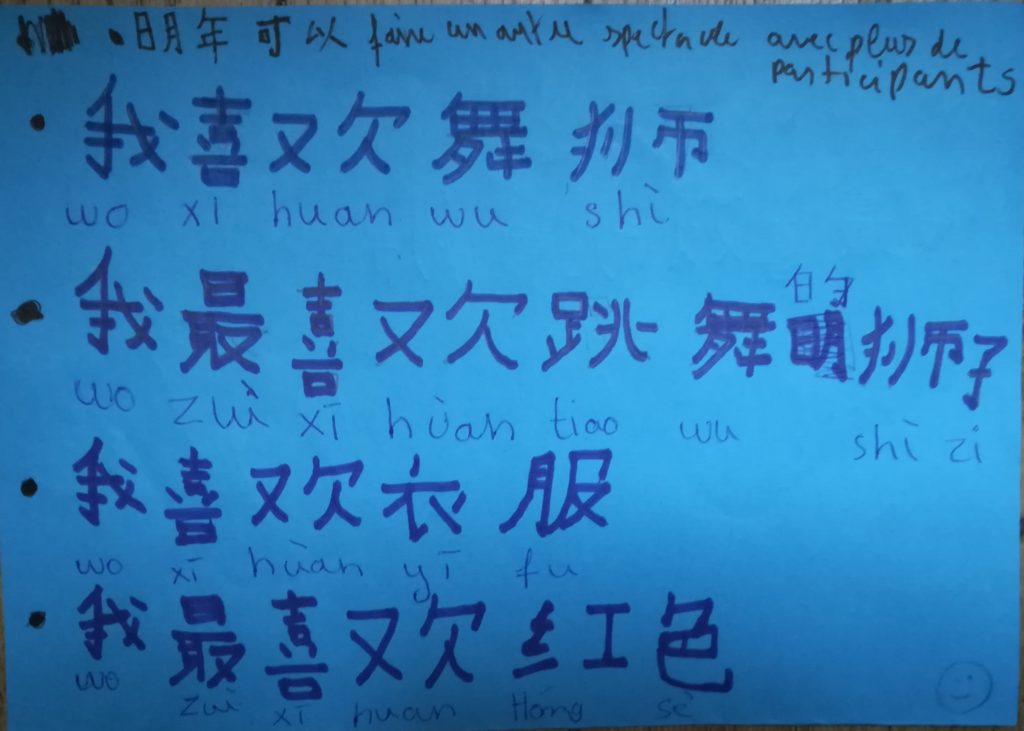 • 明年可以 faire un autre spectacle avec plus de
participants
• 我喜欢舞狮师
wo xi huan wu shì
的
• 我最喜欢跳舞明狮师子
wo zuì xī hùan tiao wu shì zi
• 我喜欢衣服
wo xī hùan yī fu
• 我最喜欢红色
wo zuì xī huan Hóng sè